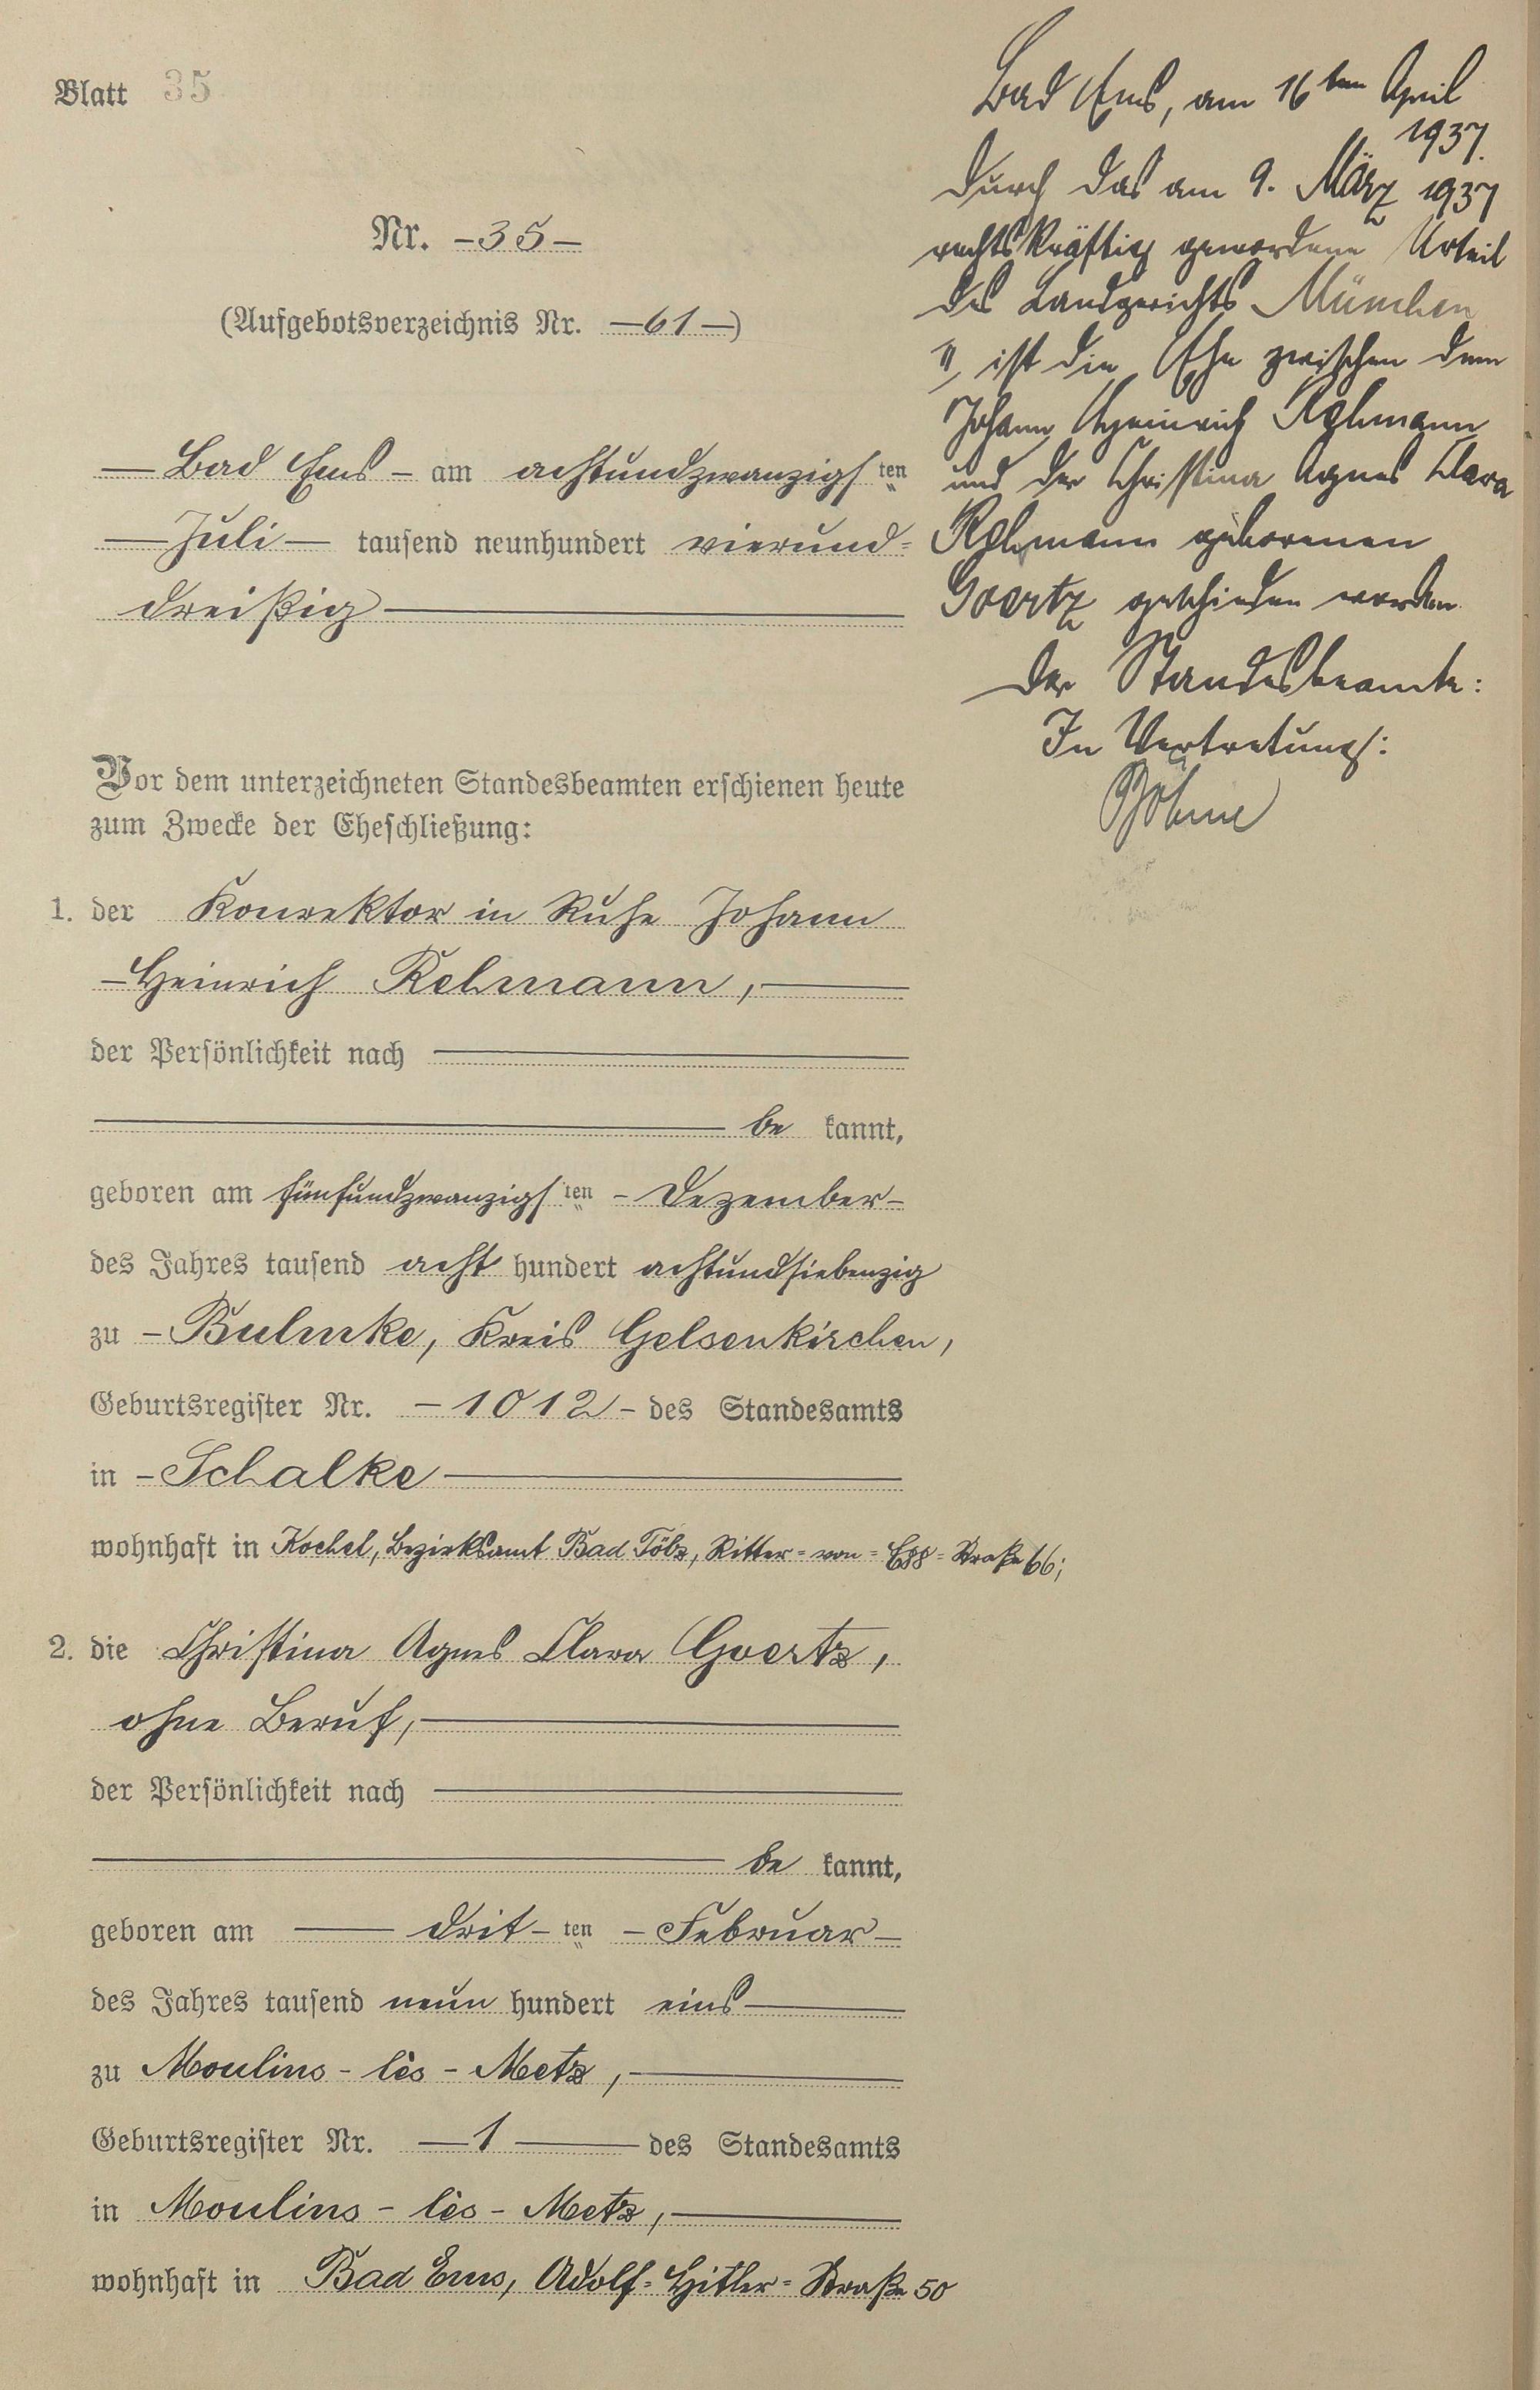 Blatt 35
Nr. -35-
(Aufgebotsverzeichnis Nr. -61-)
- Bad Ems - am achtundzwanzigsten
- Juli - tausend neunhundert vierund=
dreißig
Vor dem unterzeichneten Standesbeamten erschienen heute
zum Zwecke der Eheschließung:
1. der Konrektor in Ruhe Johann
- Heinrich Rehmann,
der Persönlichkeit nach
be kannt,
geboren am fünfundzwanzigsten - Dezember -
des Jahres tausend acht hundert achtundsiebenzig
zu - Bulmke, Kreis Gelsenkirchen,
Geburtsregister Nr. - 1012 - des Standesamts
in - Schalke
wohnhaft in Kochel, Bezirksamt Bad Tölz, Ritter=von=Epp=Straße 66;
2. die Christina Agnes Clara Goertz,
ohne Beruf,
der Persönlichkeit nach
be kannt,
geboren am drit-ten - Februar -
des Jahres tausend neun hundert eins
zu Moulins - lès - Metz,
Geburtsregister Nr. - 1 - des Standesamts
in Moulins - lès - Metz,
wohnhaft in Bad Ems, Adolf=Hitler=Straße 50
Bad Ems, am 16ten April
1937.
Durch das am 9. März 1937
rechtskräftig gewordene Urteil
des Landgerichts München
II, ist die Ehe zwischen dem
Johann Heinrich Rehmann
und der Christina Agnes Clara
Rehmann geborenen
Goertz geschieden worden.
Der Standesbeamte:
In Vertretung:
Böhme